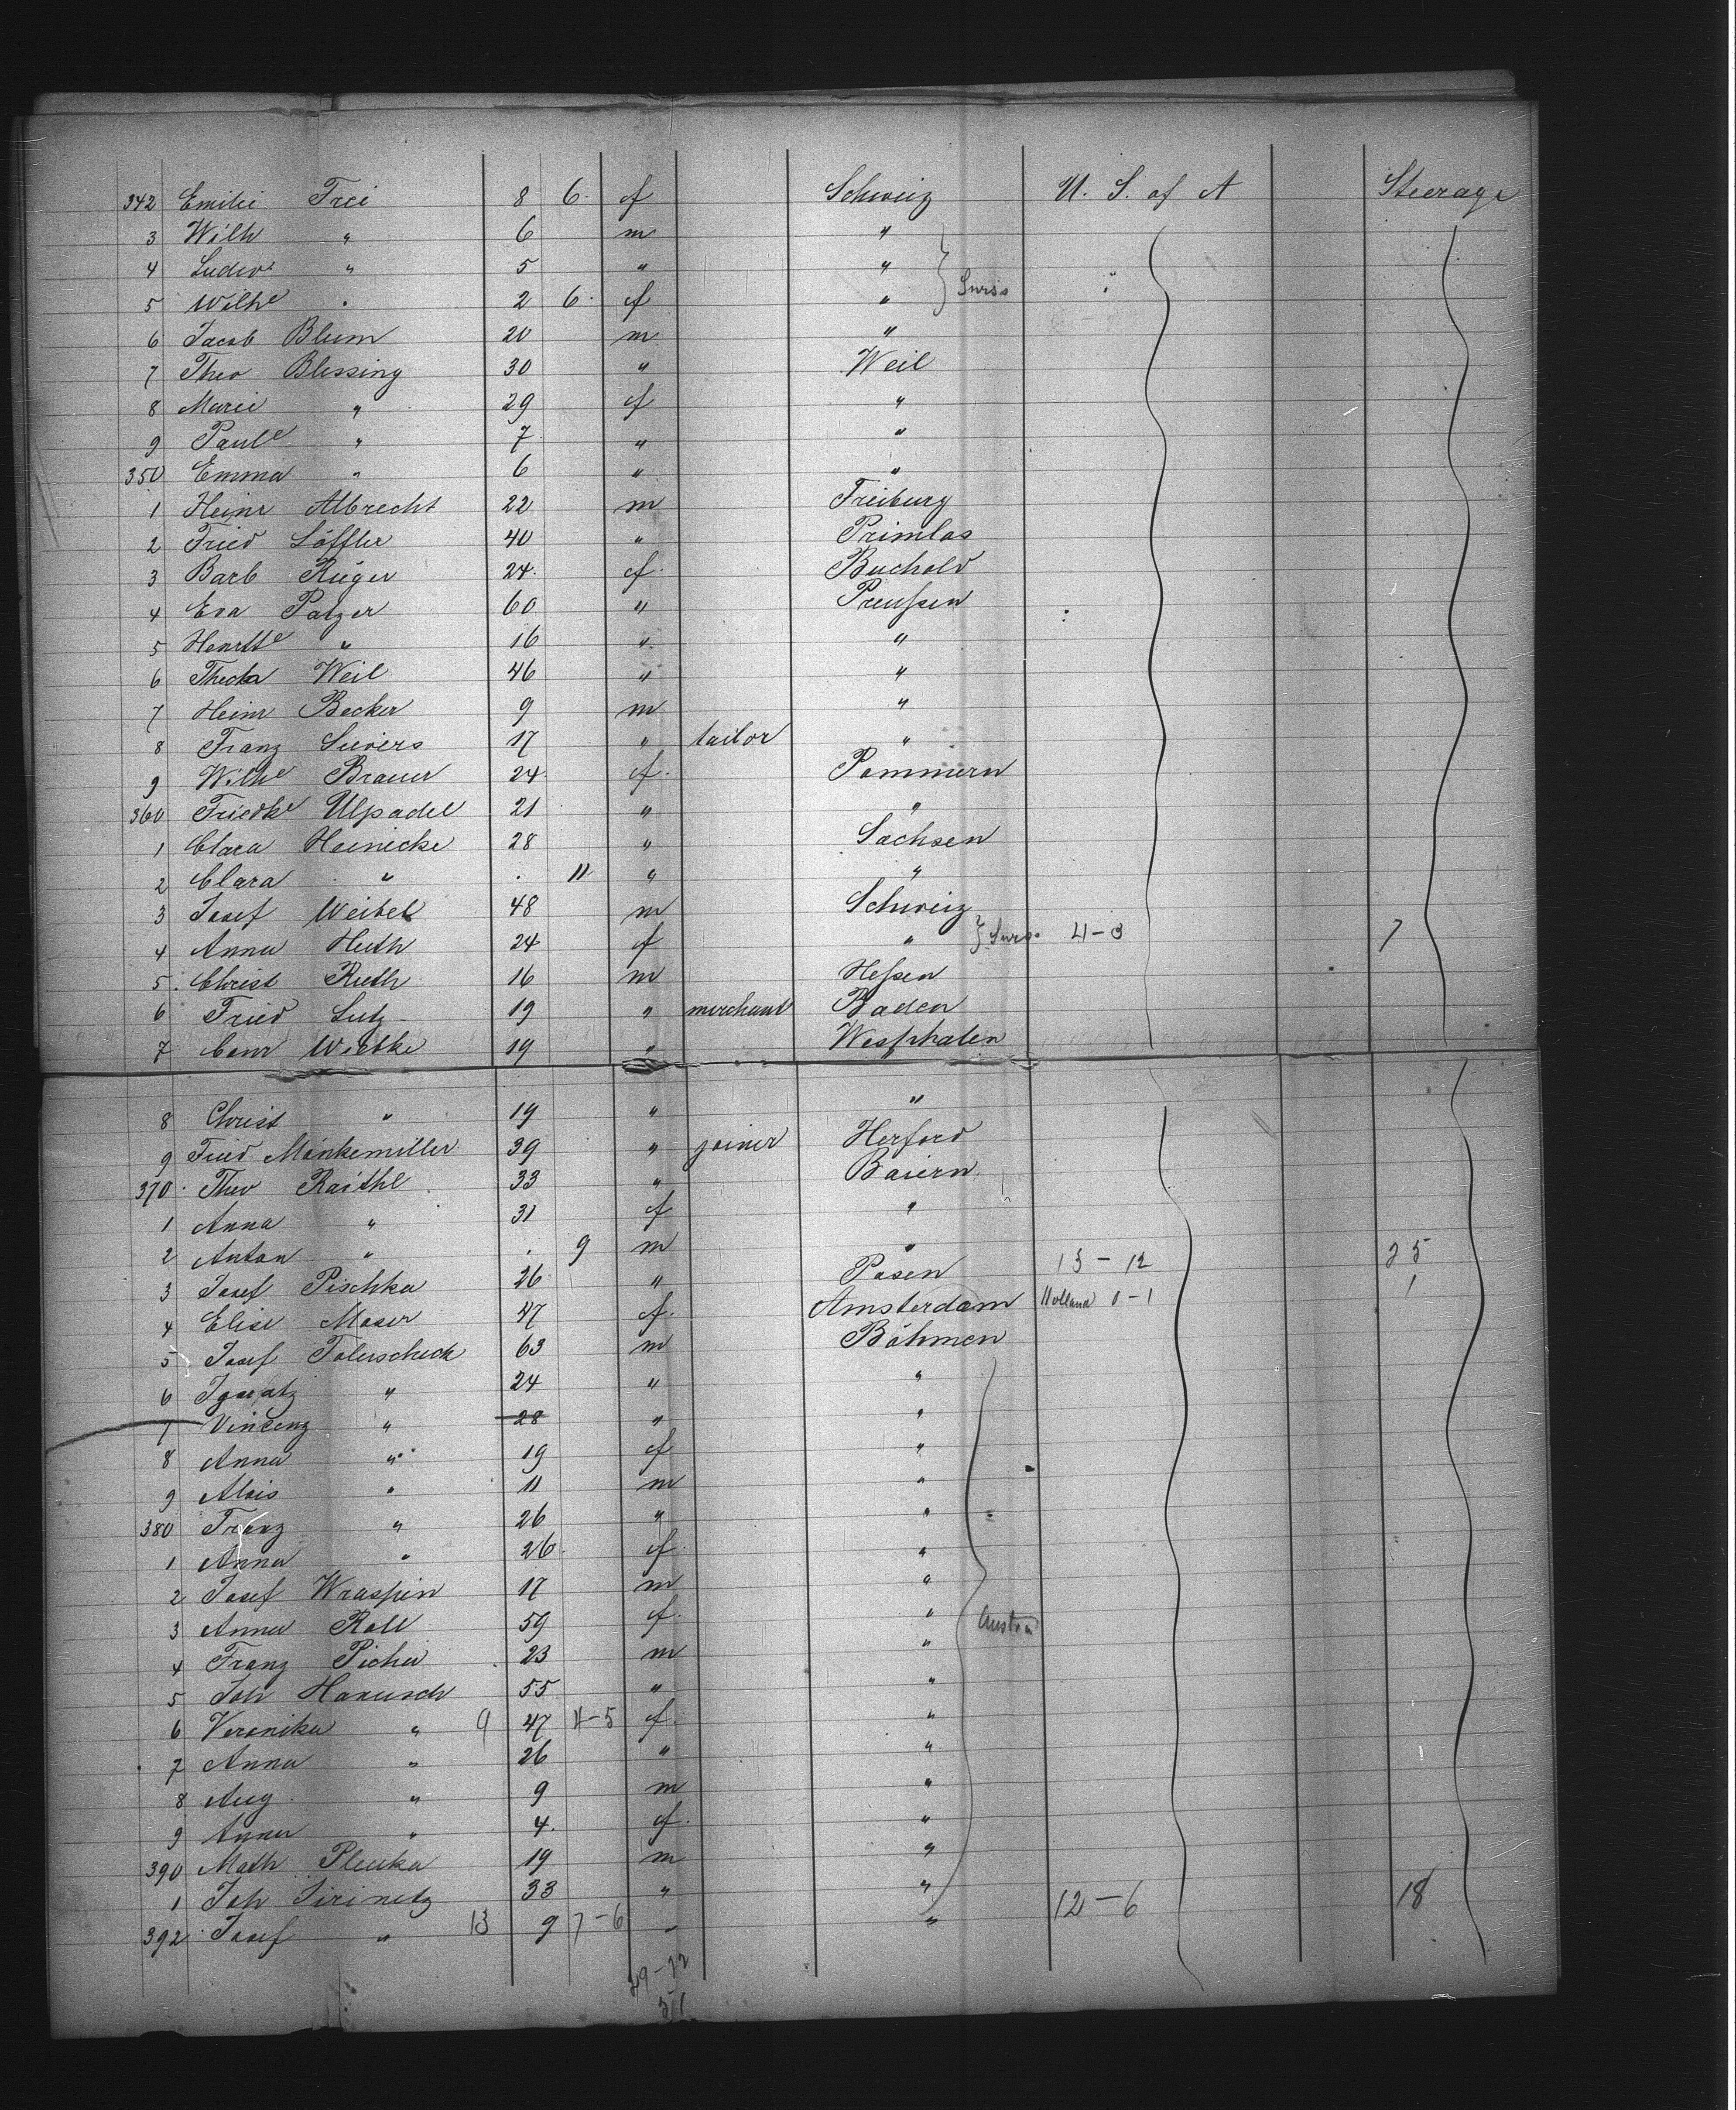 342 Emilie Frei 8 6 f Schweiz U. S. of A Steerage
3 Wilh " 6 m "
4 Ludw " 5 " "
5 Wilhe " 2 6 f "
6 Jacob Blum 20 m "
7 Theo Blessing 30 " Weil
8 Marie " 29 f "
9 Paule " 7 " "
350 Emma " 6 " "
1 Heinr Albrecht 22 m Freiburg
2 Fried Löffler 40 " Primlos
3 Barb Rüger 24 f Buchold
4 Eva Patzer 60 " Preußen
5 Henrtte " 16 " "
6 Thecla Weil 46 " "
7 Heinr Becker 9 m "
8 Franz Sievers 17 " tailor "
9 Wilhe Brauer 24 f Pommern
360 Friedke Ulpadel 21 " "
1 Clara Heinicke 28 " Sachsen
2 Clara " . 11 " "
3 Josef Weibel 48 m Schweiz
4 Anna Huth 24 f " 4-3 7
5 Christ Ruth 16 m Heßen
6 Fried Lutz 19 " merchant Baden
7 Conr Wiebke 19 " Westphalen
8 Christ " 19 " "
9 Fried Mönkemiller 39 " joiner Herford
370 Theo Raithl 33 " Baiern
1 Anna " 31 f "
2 Anton " . 9 m "
3 Josef Pischka 26 " Posen 13-12 25
4 Elise Moser 47 f Amsterdam Holland 0-1 1
5 Josef Tolerscheck 63 m Böhmen
6 Ignatz " 24 " "
7 Vincenz " 28 " "
8 Anna " 19 f "
9 Alois " 11 m "
380 Franz " 26 " "
1 Anna " 26 f "
2 Josef Wraspin 17 m "
3 Anna Roll 59 f " Austria
4 Franz Picha 23 m "
5 Joh Hanusch 55 " "
6 Veronika " 9 47 4-5 f "
7 Anna " 26 " "
8 Aug " 9 m "
9 Anna " 4 f "
390 Math Pleuka 19 m "
1 Joh Sirinetz 33 " " 12-6 18
392 Josef " 13 9 7-6 " "
29-22
51